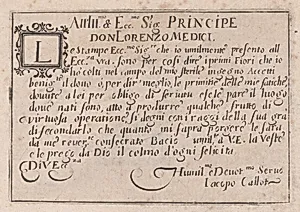 Ecc.mo Sig. PRINCIPE
DON LORENZO MEDICI.
LE Stampe Ecc.mo Sig.re che io umilmente presento all
Ecc.za vra. sono per cosi dire i primi Fiori che io
hò colti nel campo del mio sterile ingegno Accetti
benig. il dono ò per dir meglio, le primitie delle mie fatiche,
douute a lei per obligo di seruitù esse per il luogo
doue nati sono, atto à produrre qualche frutto di
virtuosa operatione, si degni con i raggi della sua gra
di secondarlo che quanto mi saprà porgere le sarà
da me reuer. consecrato Bacio umil. a V.E. la Veste
e le prego da Dio il colmo d'ogni felicità
Di V. Ecc.za
Humil.e Deuot.mo Seruo
Iacopo Callot